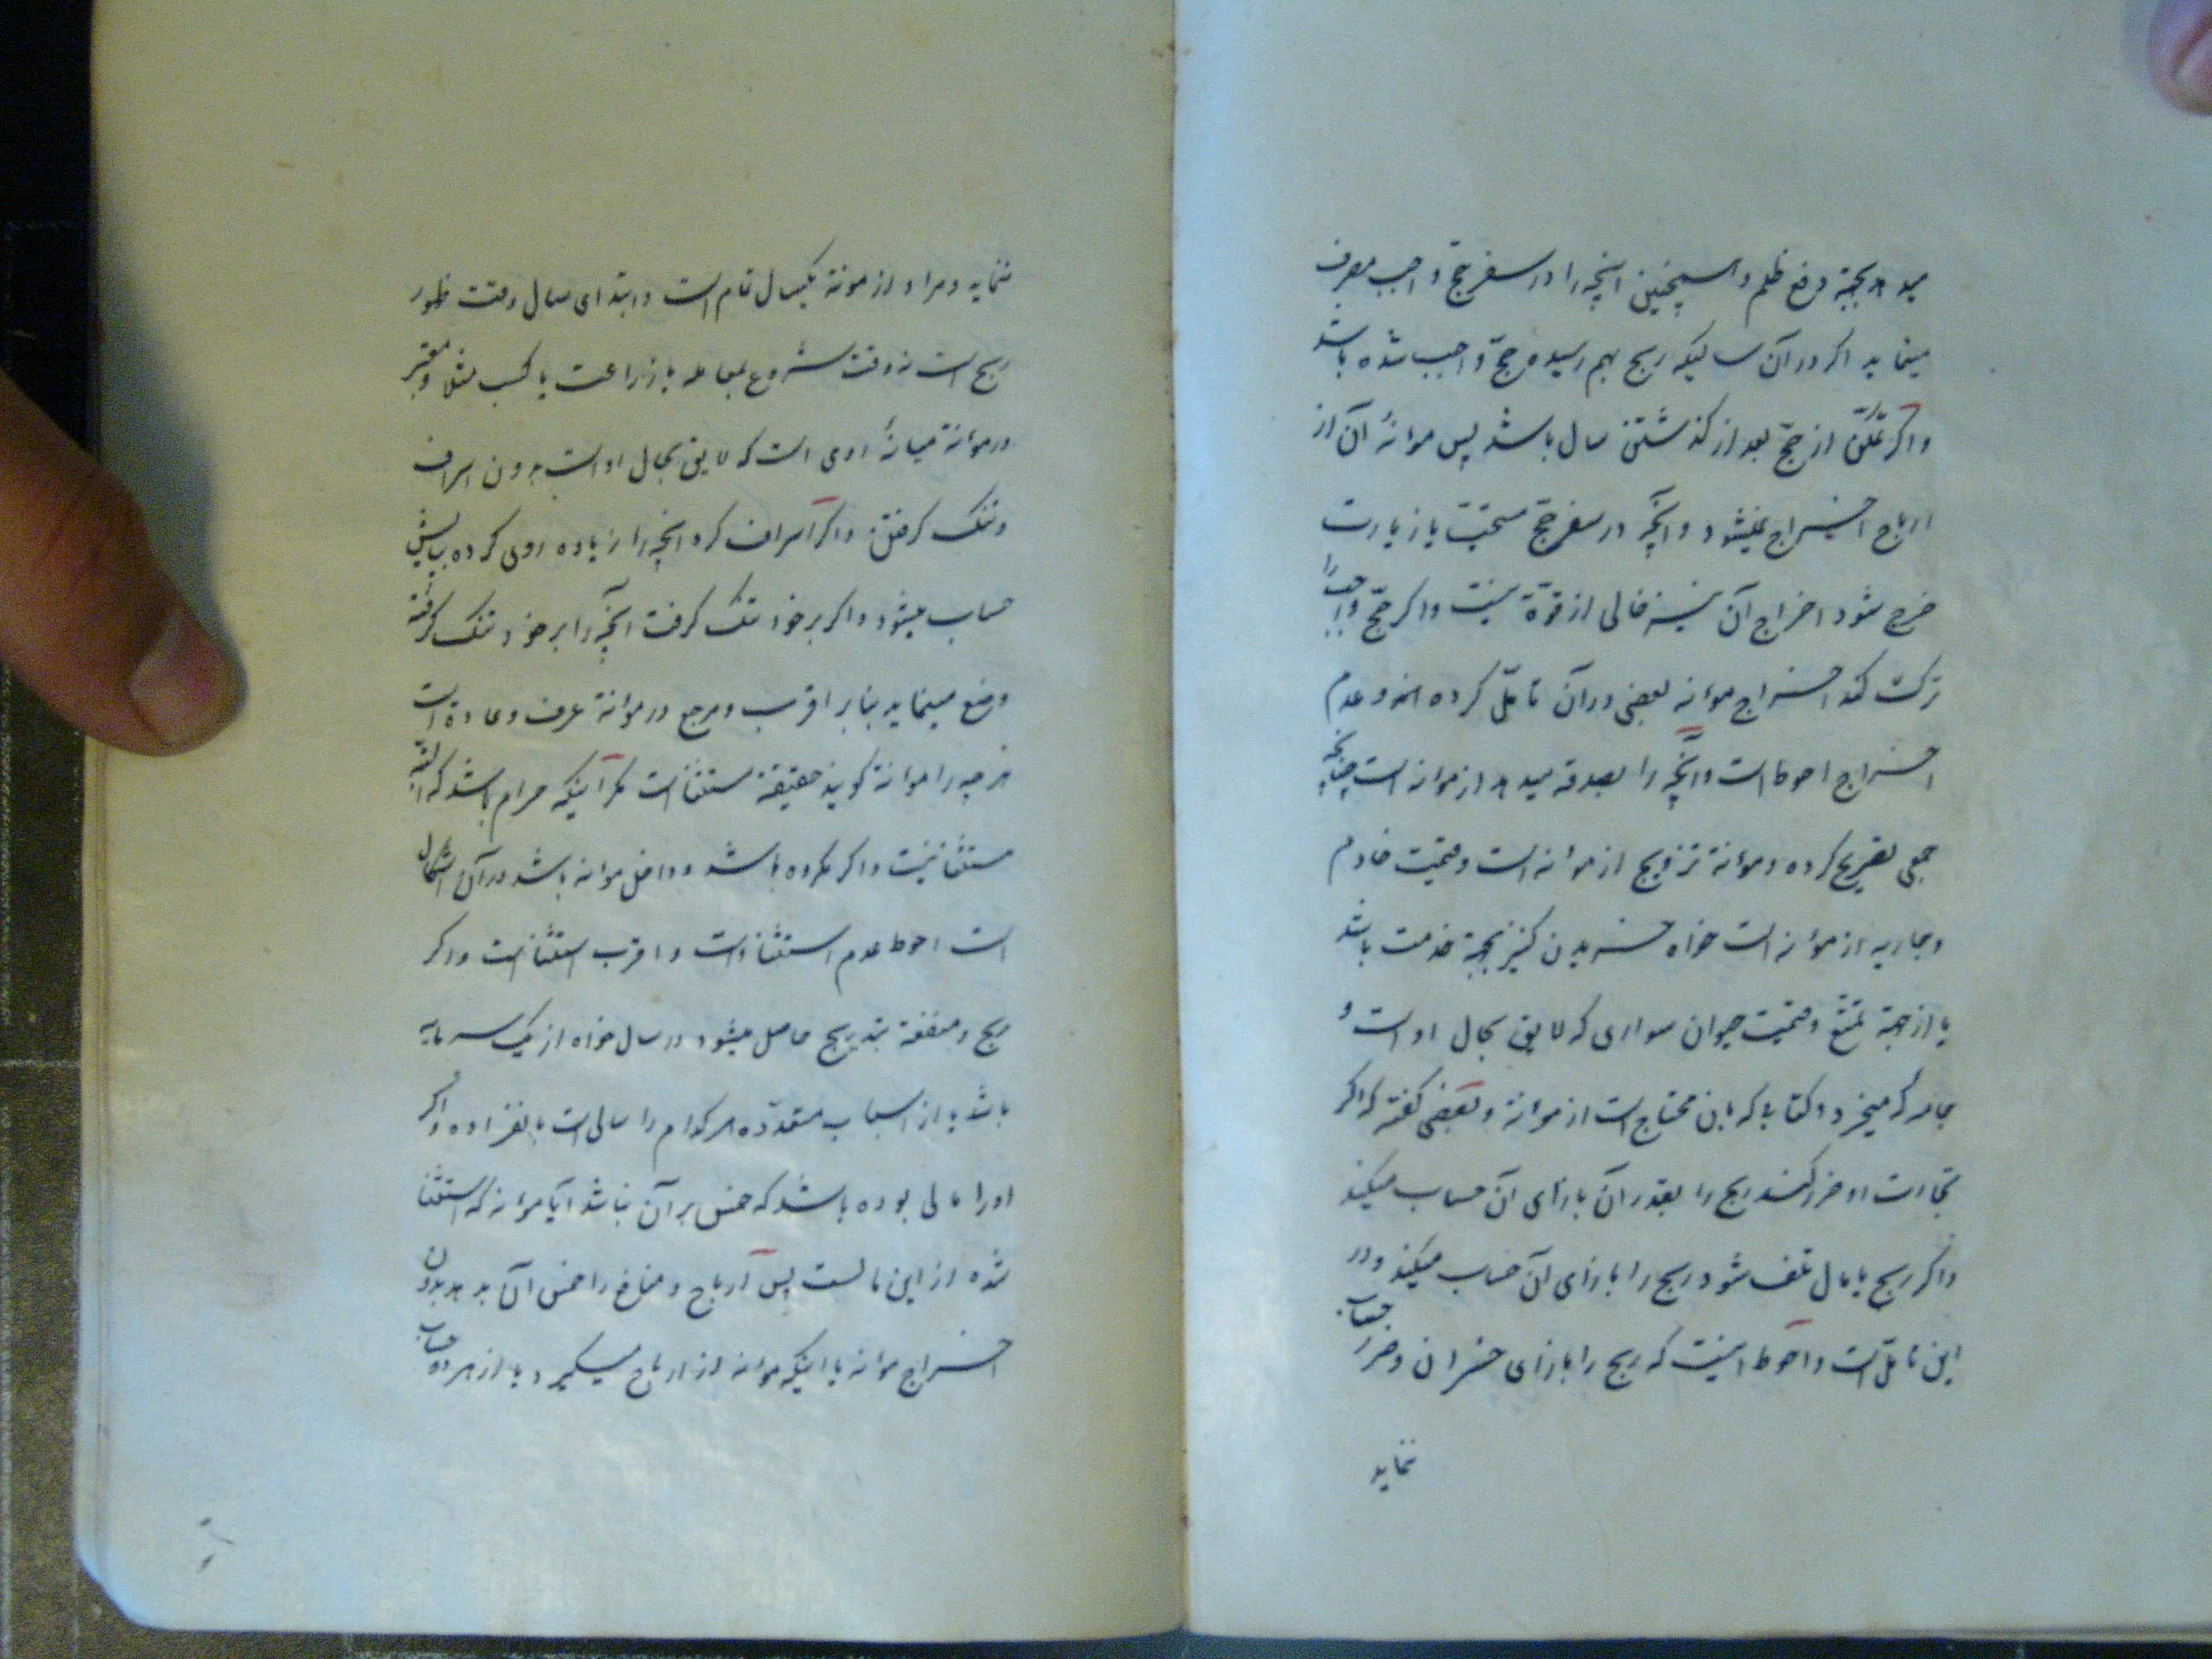 میدهد بجهة دفع ظلم و همچنین آنچه را در سفر حج واجب صرف
مینماید اگر در آن سالیکه ربح بهم رسیده حج واجب شده باشد
و اگر تمکن از حج بعد از گذشتن سال باشد پس موانهٔ آن از
ارباح اخراج نمیشود و آنچه در سفر حج سنتی یا زیارت
خرج شود اخراج آن نیز خالی از قوة نیست و اگر حج واجب را
ترک کند اخراج موانه بعضی در آن تامل کرده اند و عدم
اخراج احوط است و آنچه را بصدقه میدهد از موانه است چنانچه
جمعی تصریح کرده و موانة تزویج از موانه است و قیمت خادم
و جاریه از موانه است خواه خریدن کنیز بجهة خدمت باشد
یا از جهة تمتع و قیمت حیوان سواری که لایق بحال او است و
جامه که میخرد و کتابی که بان محتاج است از موانة و بعضی گفته که اگر
تجارت او ضرر کند ربح را بقدر آن بازای آن حساب میکند
و اگر ربح یا مال تلف شود ربح را بازای آن حساب میکند و در
این تامل است و احوط اینست که ربح را بازای خسران و ضرر حساب
نماید
ننماید و مراد از مونة یکسال تام است و ابتدای سال وقت ظهور
ربح است نه وقت شروع بمعامله یا زراعت یا کسب مثلا و معتبر
در موانة میانه روی است که لایق بحال او است بدون اسراف
و تنگ گرفتن و اگر اسراف کرد آنچه را زیاده روی کرده بپایش
حساب میشود و اگر بر خود تنگ گرفت آنچه را بر خود تنگ گرفته
وضع مینماید بنابر اقرب و مرجع در موانة عرف و عادة است
هرچه را موانة گویند حقیقة مستثنا است مگر اینکه حرام باشد که البته
مستثنا نیست و اگر مکروه باشد و داخل موانه باشد در آن اشکال
است احوط عدم استثنا است و اقرب استثنا است و اگر
ربح و منفعة بتدریج حاصل میشود در سال خواه از یک سرمایه
باشد یا از اسباب متعدده هر کدام را سالی است بانفراده و اگر
او را مالی بوده باشد که خمس بر آن نباشد آیا موانه که استثنا
شده از این مالست پس ارباح و منافع را خمس آن بدهد بدون
اخراج موانه یا اینکه موانه از ارباح میگیرد یا از هر دو حساب